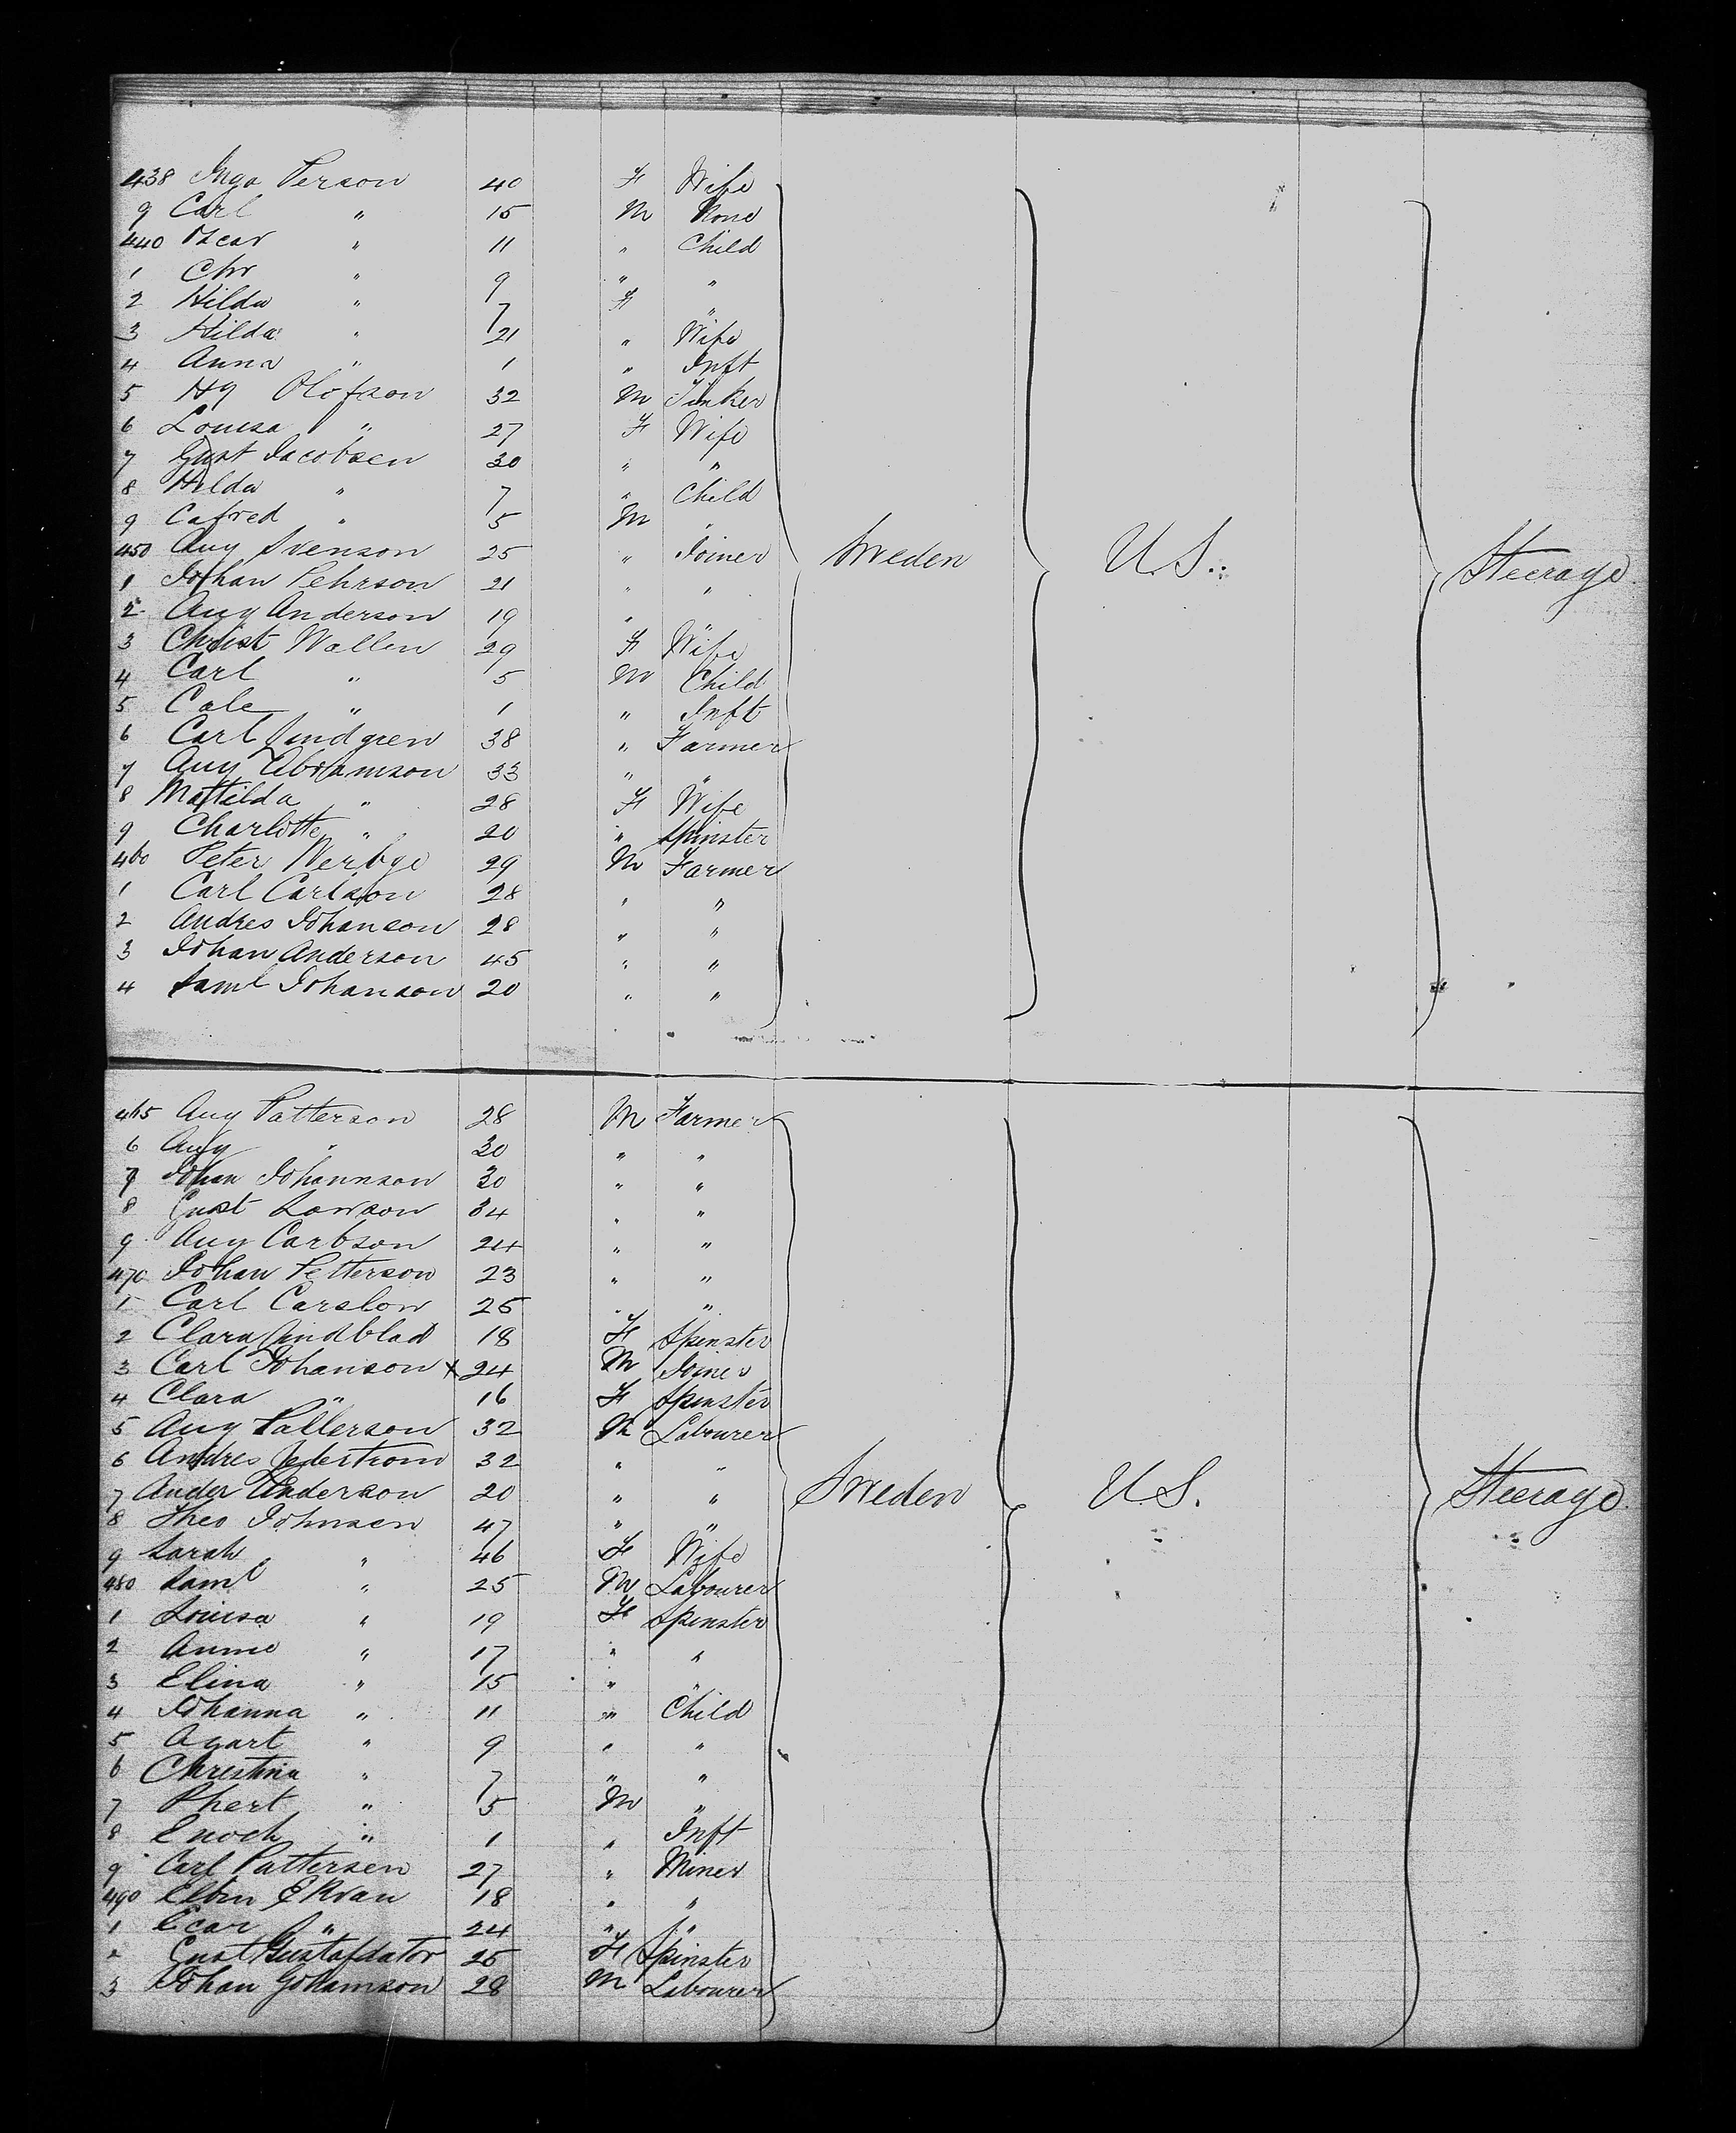 438 Inga Person 40 F Wife
9 Carl " 15 M None
440 Oscar " 11 " Child
1 Chr " 9 " "
2 Hilda " 7 F "
3 Hilda " 21 " Wife
4 Anna " 1 " Inft
5 Hy Olofson 32 M Tinker
6 Louisa " 27 F Wife
7 Gust Jacobsen 30 " "
8 Hilda " 7 " Child
9 Cafred " 5 M "
450 Aug Svenson 25 " Joiner Sweden U.S. Steerage
1 Johan Pehrson 21 " "
2 Aug Anderson 19 " "
3 Christ Wallen 29 F Wife
4 Carl " 5 M Child
5 Cale " 1 " Inft
6 Carl Lindgren 38 " Farmer
7 Aug Abramson 33 " "
8 Mattilda " 28 F Wife
9 Charlotte " 20 " Spinster
460 Peter 29 M Farmer
1 Carl Carlson 28 " "
2 Andres Johanson 28 " "
3 Johan Anderson 45 " "
4 Saml Johanson 20 " "
465 Aug Patterson 28 M Farmer
6 Aug " 30 " "
7 Johan Johannson 30 " "
8 Gust Lawson 34 " "
9 Aug Carbson 24 " "
470 Johan Petterson 23 " "
1 Carl Carslon 25 " "
2 Clara Lindblad 18 F Spinster
3 Carl Johanson x 24 M Joiner
4 Clara " 16 F Spinster
5 Aug Patterson 32 M Labourer
6 Andres 32 " "
7 Ander Anderson 20 " " Sweden U.S. Steerage
8 Theo Johnsen 47 " "
9 Sarah " 46 F Wife
480 Saml " 25 M Labourer
1 Louisa " 19 F Spinster
2 Annie " 17 " "
3 Elina " 15 " "
4 Johanna " 11 " Child
5 Agart " 9 " "
6 Christina " 7 " "
7 " 5 M "
8 Enoch " 1 " Inft
9 Carl Pattersen 27 " Miner
490 18 " "
1 Ecar " 24 " "
2 Gust Gustafdator 25 F Spinster
3 Johan 28 M Labourer